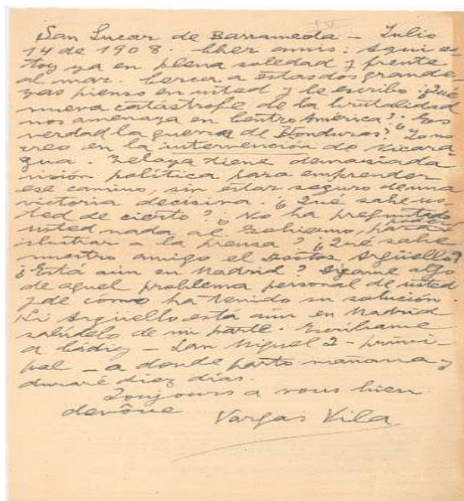 San Lucar de Barrameda - Julio
14 de 1908. Cher amis: Aqui es
toy ya en plena soledad y frente
al mar. Cerca a estas dos grande
zas pienso en usted y le escribo ¿Qué
nueva catástrofe de la brutalidad
nos amenaza en Centro América? ¿Es
verdad la guerra de Honduras? ¿Yo no
creo en la intervención de Nicara
gua. Zelaya tiene demasiada
visión política para emprender
ese camino, sin estar seguro de una
victoria decisiva. ¿Qué sabe us
ted de cierto? ¿No ha preguntado
usted nada al Gobierno, para
ilustrar a la prensa? ¿Qué sabe
nuestro amigo el Doctor Argüello?
¿Está aún en Madrid? Dígame algo
de aquel problema personal de usted
y de como ha tenido su solución.
Si Argüello está aún en Madrid
salúdelo de mi parte. Escríbame
a Cádiz - San Miguel 2 - princi
pal - a donde parto mañana y
duraré diez días.
Toujours a vous bien
Vargas Vila